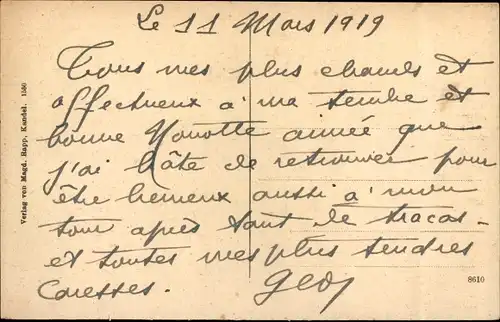 Le 11 Mars 1919
Tous mes plus chauds et
affectueux à ma tendre et
bonne Nonotte aimée que
j'ai hâte de retrouver pour
être heureux aussi à mon
tour après tant de tracas
et toutes mes plus tendres
Caresses.
Verlag von Magd. Rapp, Kandel. 1550
8610